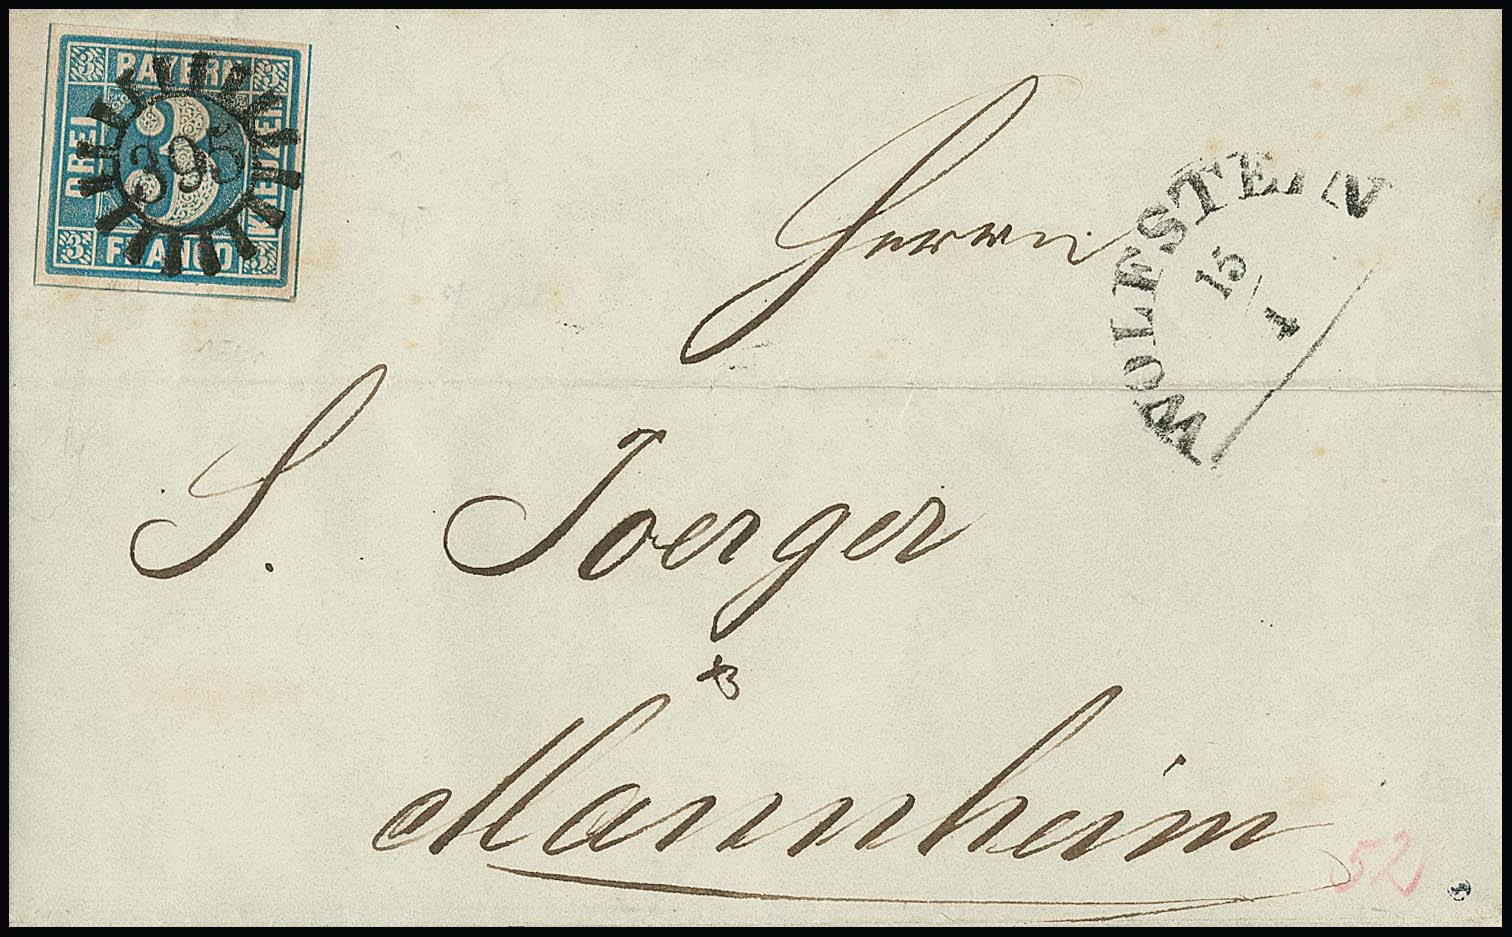 3 BAYERN 3
DREI
395
KREUZER
3 FRANCO 3
WOLFSTEIN
15
1
Herrn
S. Joerger
Mannheim
52